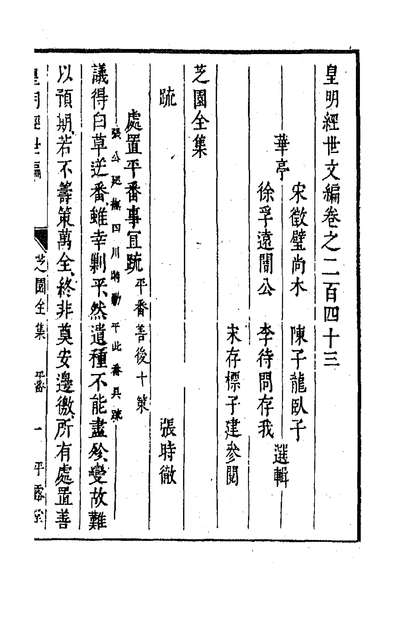 皇明經世文編卷之二百四十三
華亭
宋徵璧尚木
陳子龍臥子
選輯
徐孚遠闇公
李待問存我
宋存標子建參閱
芝園全集
疏
張時徹
處置平番事宜疏
平番善後十策
張公廵撫四川時勦平此番具疏
議得白草逆番、雖幸剿平、然遺種不能盡殄、變故難
以預期、若不籌策萬全、終非奠安邊徼、所有處置善
皇明經世文編
芝園全集
番
一
平露堂